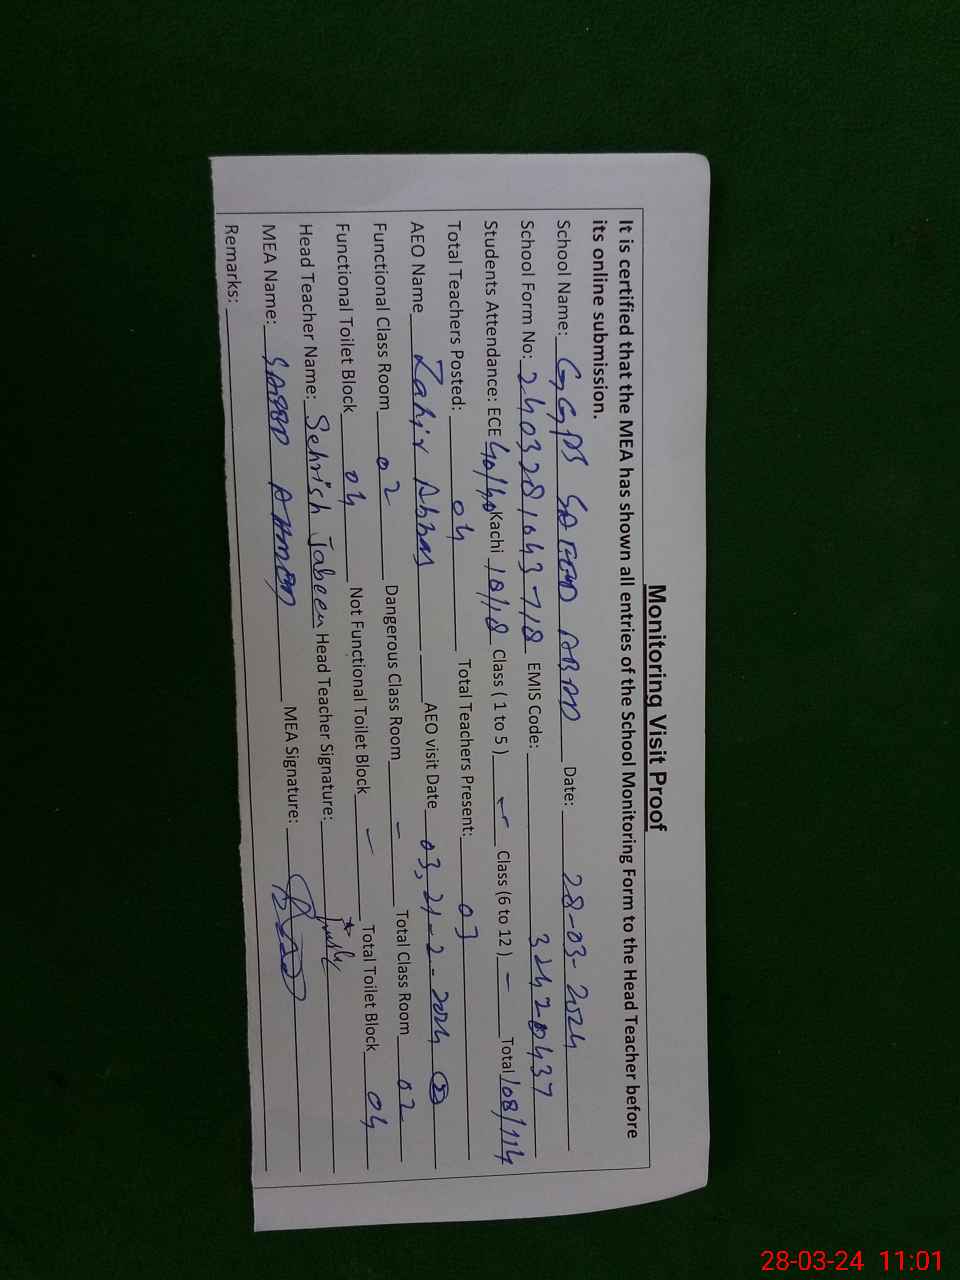 Monitoring Visit Proof
It is certified that the MEA has shown all entries of the School Monitoring Form to the Head Teacher before
its online submission.
School Name: GGPS SAEED ABAD Date: 28-03-2024
School Form No: EMIS Code: 32420437
Students Attendance: ECE 40/40 Kachi Class ( 1 to 5 ) Class (6 to 12 ) - Total 108/114
Total Teachers Posted: 04 Total Teachers Present: 03
AEO Name Zahir Abbas AEO visit Date 03, 21-2-2024
Functional Class Room 02 Dangerous Class Room - Total Class Room 02
Functional Toilet Block 04 Not Functional Toilet Block - Total Toilet Block 04
Head Teacher Name: Sehrish Jabeen Head Teacher Signature:
MEA Name: SAEED AHMED MEA Signature:
Remarks:
28-03-24 11:01